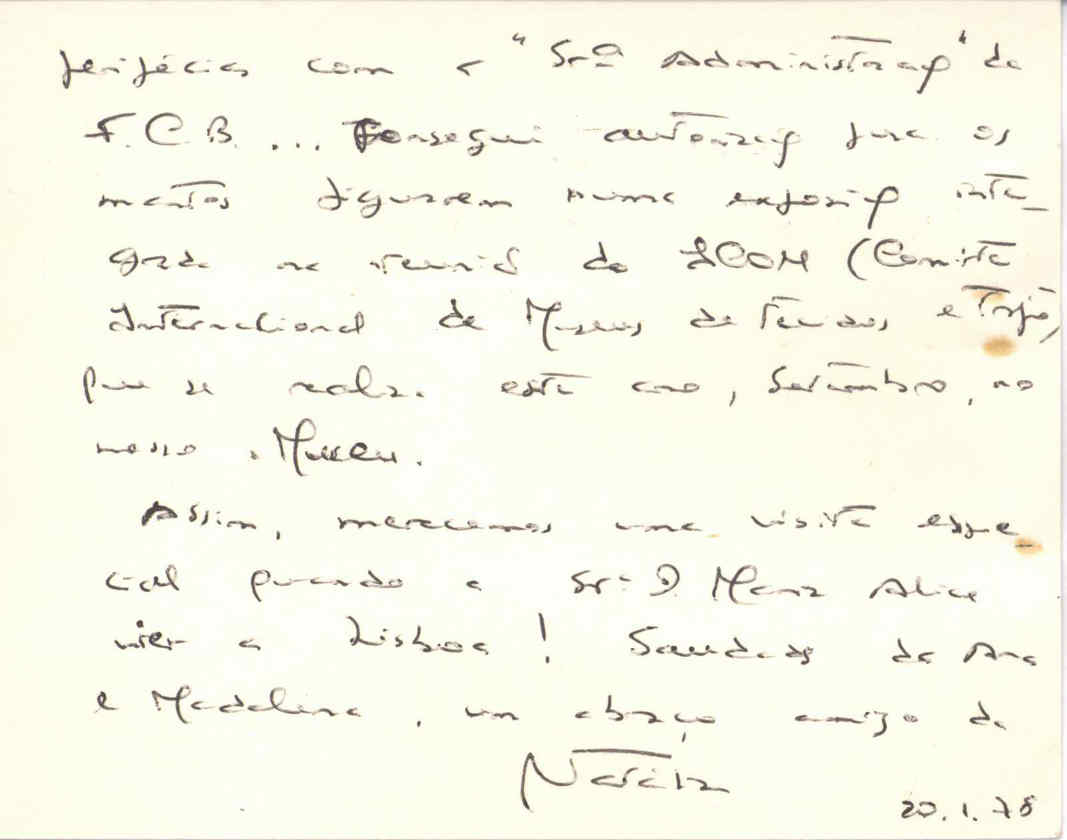 peripécias com a "Srª Administração" da
F.C.B. ... Consegui autorização para os
mantos figurarem numa exposição inte-
grada na reunião do ICOM (Comité
International de Museus de Tecidos e Trajo)
que se realiza este ano, Setembro, no
nosso Museu.
Assim, merecemos uma visita espe-
cial quando a Srª D. Maria Alice
vier a Lisboa! Saudades da Ana
e Madalena, um abraço amigo da
Natália
20.1.78